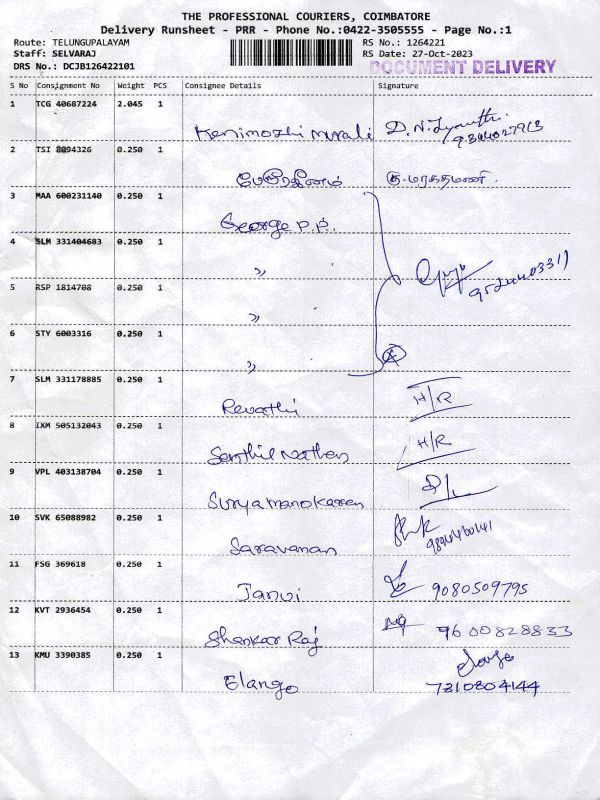 THE PROFESSIONAL COURIERS, COIMBATORE
Delivery Runsheet - PRR - Phone No.:0422-3505555 - Page No.:1
Route: TELUNGUPALAYAM RS No.: 1264221
Staff: SELVARAJ RS Date: 27-Oct-2023
DRS No.: DCJB126422101 DOCUMENT DELIVERY
S No Consignment No Weight PCS Consignee Details Signature
1 TCG 40687224 2.045 1
Kanimozhi Murali
2 TSI 8094326 0.250 1
3 MAA 600231140 0.250 1
George P.P.
4 SLM 331404683 0.250 1
"
5 RSP 1814708 0.250 1
"
6 STY 6003316 0.250 1
"
7 SLM 331178885 0.250 1
Revathi H/R
8 IXM 505132043 0.250 1
Senthil Nathan H/R
9 VPL 403138704 0.250 1
Surya manokaran
10 SVK 65088982 0.250 1
Saravanan
11 FSG 369618 0.250 1
Janvi 9080509795
12 KVT 2936454 0.250 1
Shankar Raj 9600828833
13 KMU 3390385 0.250 1
Elango
7810804144